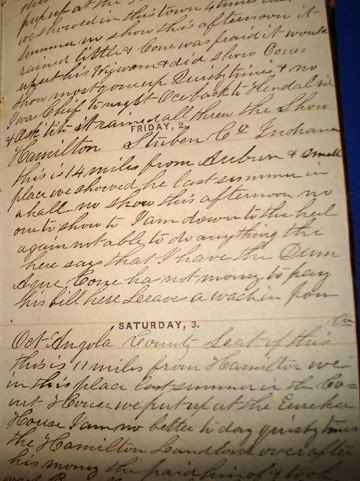 put up at the
we showed in this town 4 times last
summer no show this afternoon it
rained little & Cone was feard it would
& did show Coxes
show most gone up Dusty times & no
I was Chief to night Oce back to Kendalvil
& it rained all threw the Show
FRIDAY, 2.
Hamilton Stuben Co Indiana
this is 14 miles from Auburn & small
place we showed he last summer in
a hall no show this afternoon no
one to show to I am down to the heel
again not able to do any thing the
here says that I have the Dum
Ague, Cone ha not money to pay
his bill here Leaves a wach in pon
SATURDAY, 3.
Oct Angola County Seat of this Co
this is 11 miles from Hamilton we
in this place last summer in the Co
ourt House we put up at the Eureka
House I am no better to day dusty times
the Hamilton Landlord over after
his money he paid him & took